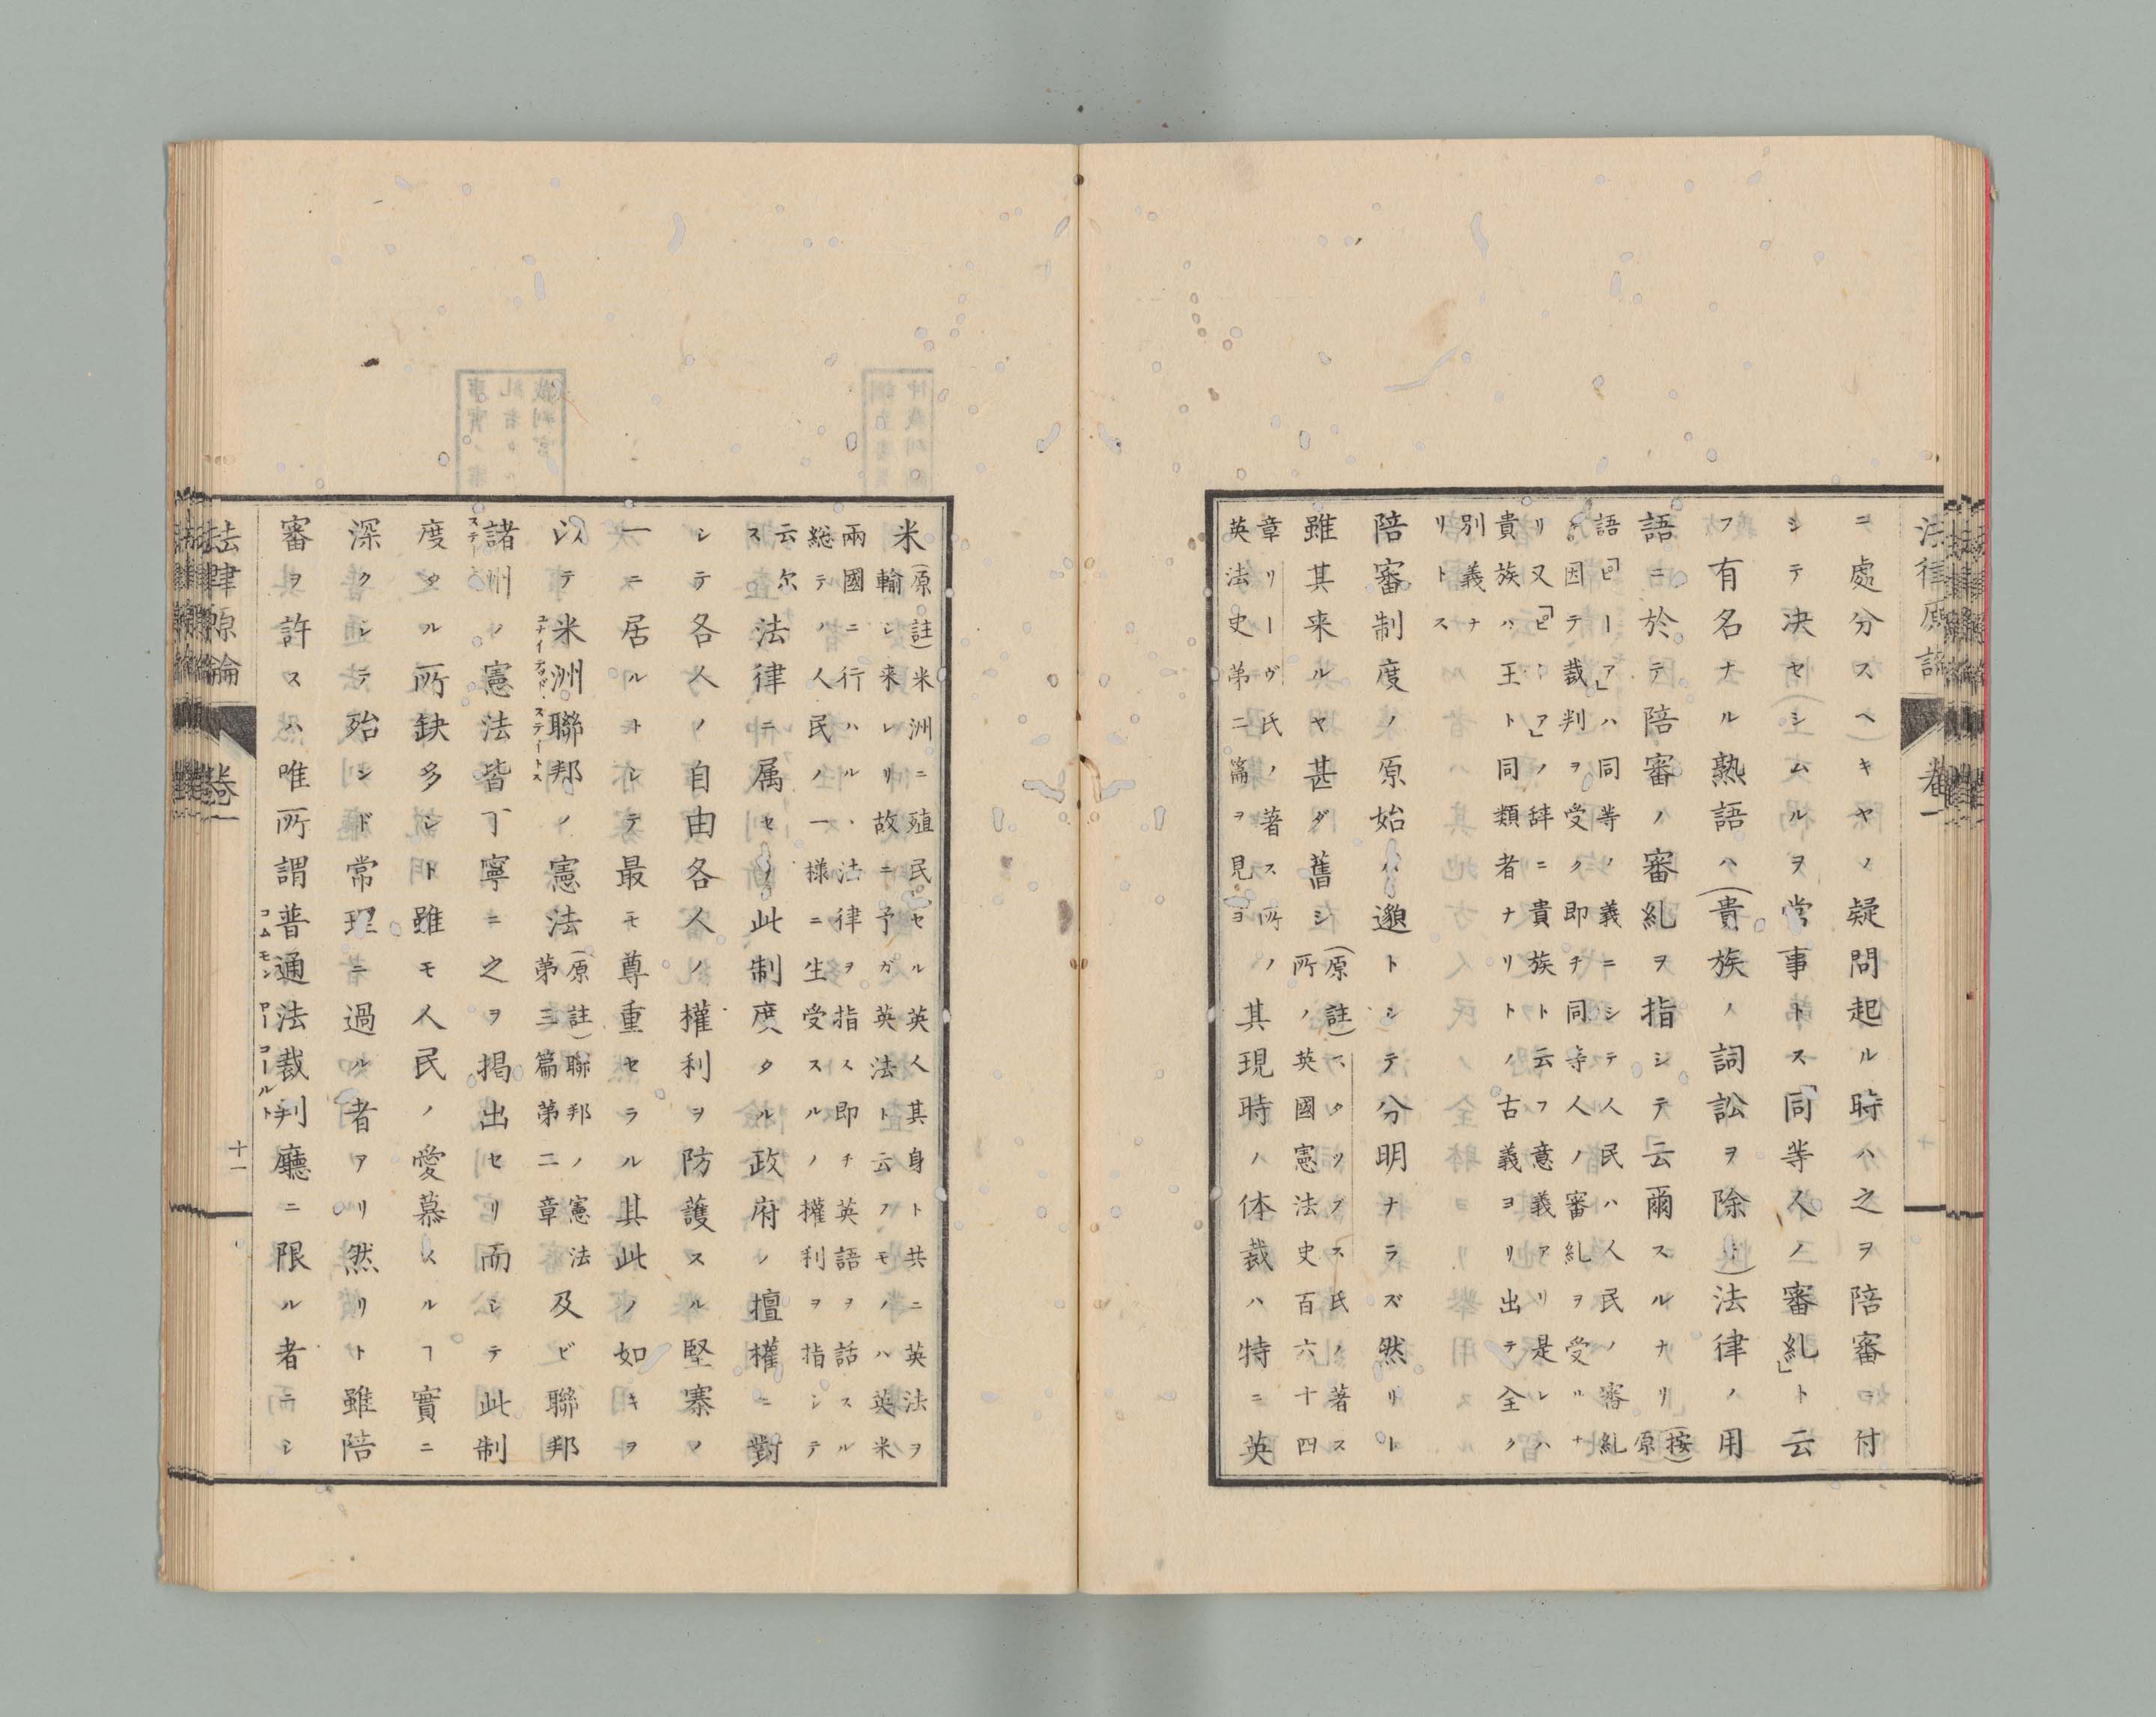 法律原論 卷一
ニ處分スヘキヤノ疑問起ル時ハ之ヲ陪審ニ付
シテ决セシムルヲ常事トス「同等人ノ審糺」ト云
フ有名ナル熟語ハ(貴族ノ詞訟ヲ除ク)法律ノ用
語ニ於テ陪審ノ審糺ヲ指シテ云爾スルナリ(按)原
語「ピーア」ハ同等ノ義ニシテ人民ハ人民ノ審糺
ニ因テ裁判ヲ受ク即チ同等人ノ審糺ヲ受ルナ
リ又「ピーア」ノ辞ニ貴族ト云フ意義アリ是レハ
貴族ハ王ト同類者ナリトノ古義ヨリ出テ全ク
別義ナ
リトス
陪審制度ノ原始ハ邈トシテ分明ナラズ然リト
雖其来ルヤ甚ダ舊シ(原註)スタッブス氏ノ著ス
所ノ英國憲法史百六十四
章リーヴ氏ノ著ス所ノ
英法史第二篇ヲ見ヨ
其現時ノ体裁ハ特ニ英
米(原註)米洲ニ殖民セル英人其身ト共ニ英法ヲ
輸シ来レリ故ニ予ガ英法ト云フモノハ英米
兩國ニ行ハルヽ法律ヲ指ス即チ英語ヲ話スル
総テノ人民ノ一様ニ生受スルノ權利ヲ指シテ
云尓
ス
法律ニ属セリ此制度タル政府ノ擅權ニ對
シテ各人ノ自由各人ノ權利ヲ防護スル堅寨ノ
一ニ居ルトシテ最モ尊重セラル其此ノ如キヲ
以テ米洲聯邦ノ憲法(原註)聯邦ノ憲法
第三篇第二章
及ビ聯邦
ユナイテッド・ステートス
諸洲ノ憲法皆丁寧ニ之ヲ掲出セリ而シテ此制
度タル所缺多シト雖モ人民ノ愛慕スルヿ實ニ
深クシテ殆ンド常理ニ過ル者アリ然リト雖陪
審ヲ許スハ唯所謂普通法裁判廳ニ限ル者ニシ
コムモン ロー コールト
法律原論 卷一 十一